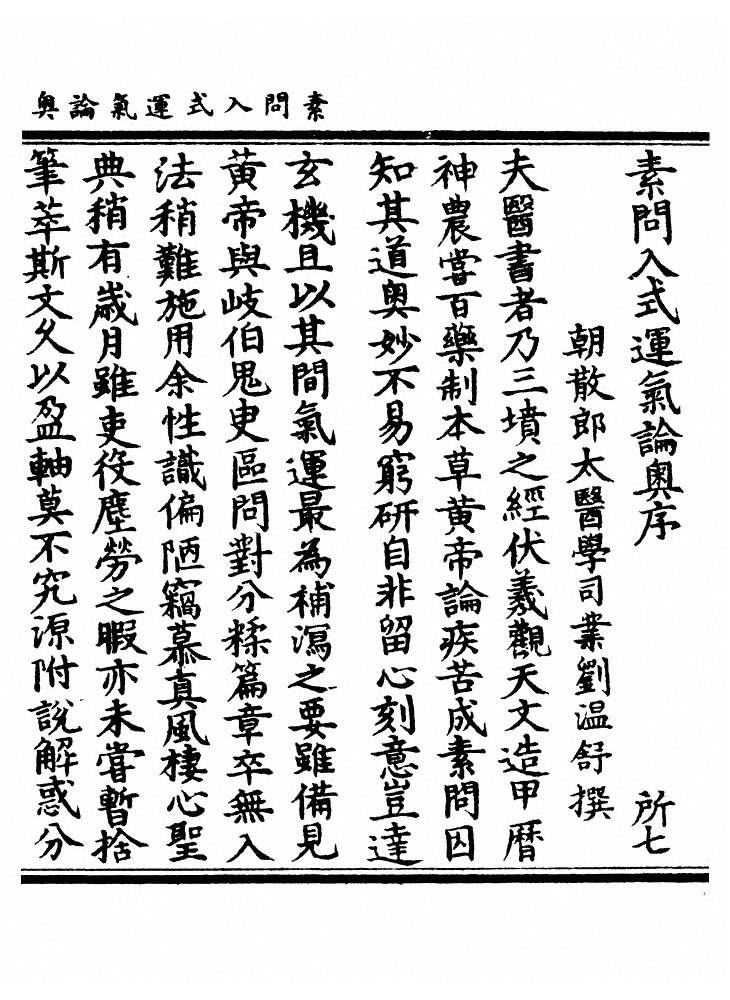 素問入式運氣論奧
素問入式運氣論奧序　所七
朝散郎太醫學司業劉溫舒撰
夫醫書者乃三墳之經伏羲觀天文造甲曆
神農嘗百藥制本草黃帝論疾苦成素問因
知其道奧妙不易窮研自非留心刻意豈達
玄機且以其間氣運最為補瀉之要雖備見
黃帝與岐伯鬼臾區問對分糅篇章卒無入
法稍難施用余性識偏陋竊慕真風棲心聖
典稍有歲月雖吏役塵勞之暇亦未嘗暫捨
筆萃斯文久以盈軸莫不究源附說解惑分